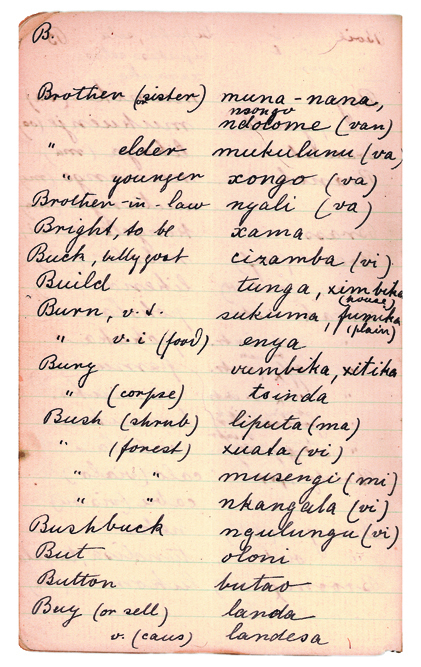 B.
Brother (or sister) muna-nana,
nsongo
ndolome (van)
" elder mukulunu (va)
" younger xongo (va)
Brother-in-law nyali (va)
Bright, to be xama
Buck, billy goat cizamba (vi)
Build tunga, ximbika
(house)
Burn, v.t. sukuma, fumika
(plain)
" v.i (food) enya
Bury vumbika, xitika
" (corpse) tsinda
Bush (shrub) liputa (ma)
" (forest) xuata (vi)
" " musengi (mi)
" " nkangala (vi)
Bushbuck ngulungu (vi)
But oloni
Button butao
Buy (or sell) landa
v. (caus) landesa